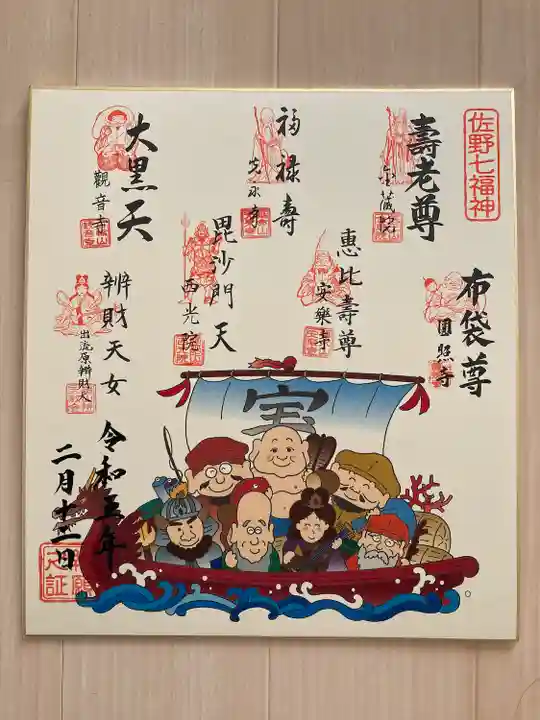 佐野七福神
壽老尊
金蔵院
福禄壽
大黒天
觀音寺
布袋尊
圓照寺
惠比壽尊
安樂寺
毘沙門天
西光院
辨財天女
出流原辨財天
宝
令和五年
二月十二日